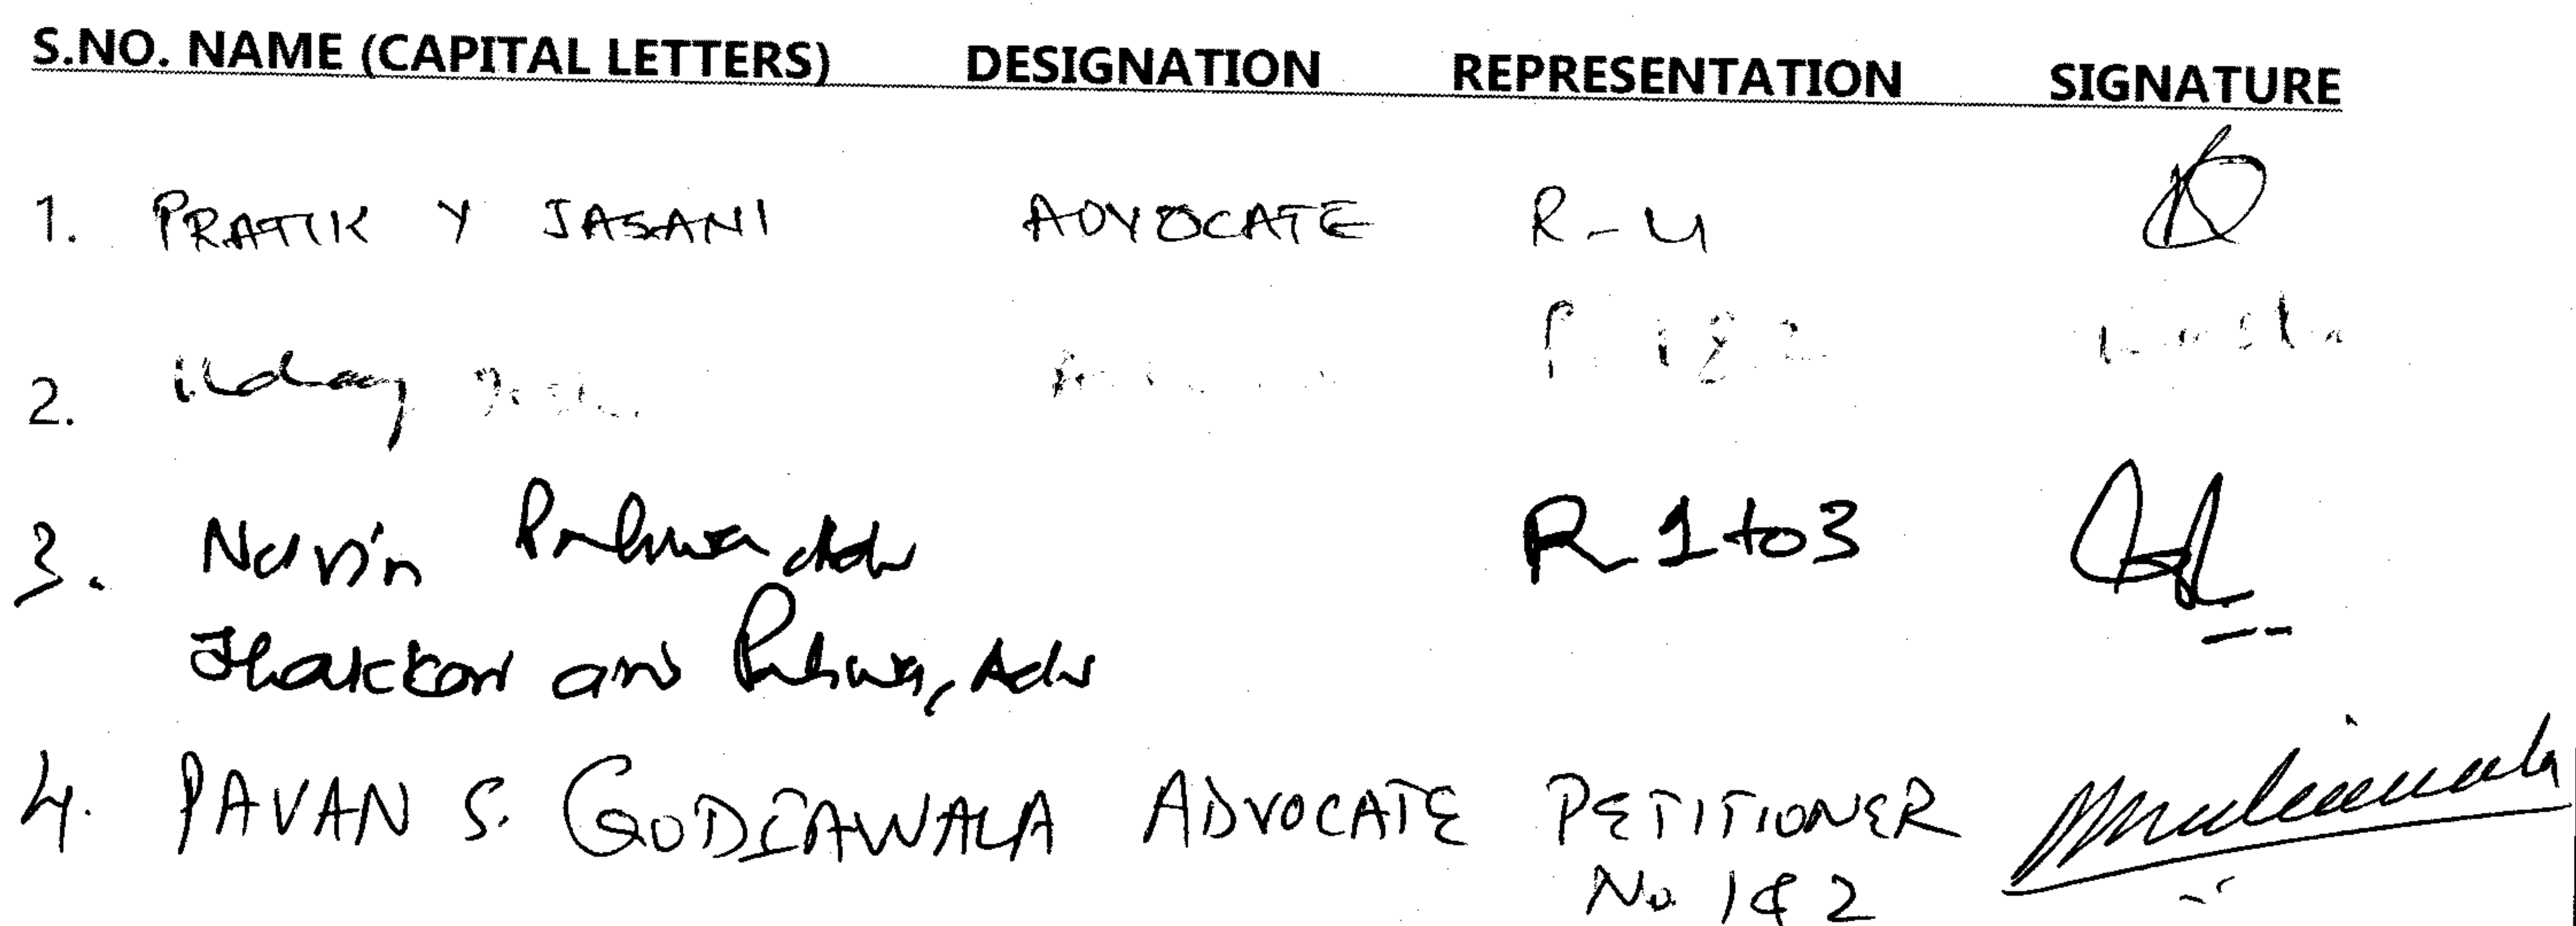 S.NO. NAME (CAPITAL LETTERS) DESIGNATION REPRESENTATION SIGNATURE
1. PRATIK Y JASANI ADVOCATE R-4
2. Uday P. 1 & 2
3. Navin Pahwa, Adv R 1 to 3
Thakkar and Pahwa, Adv
4. PAVAN S. GODIAWALA ADVOCATE PETITIONER
No. 1 & 2